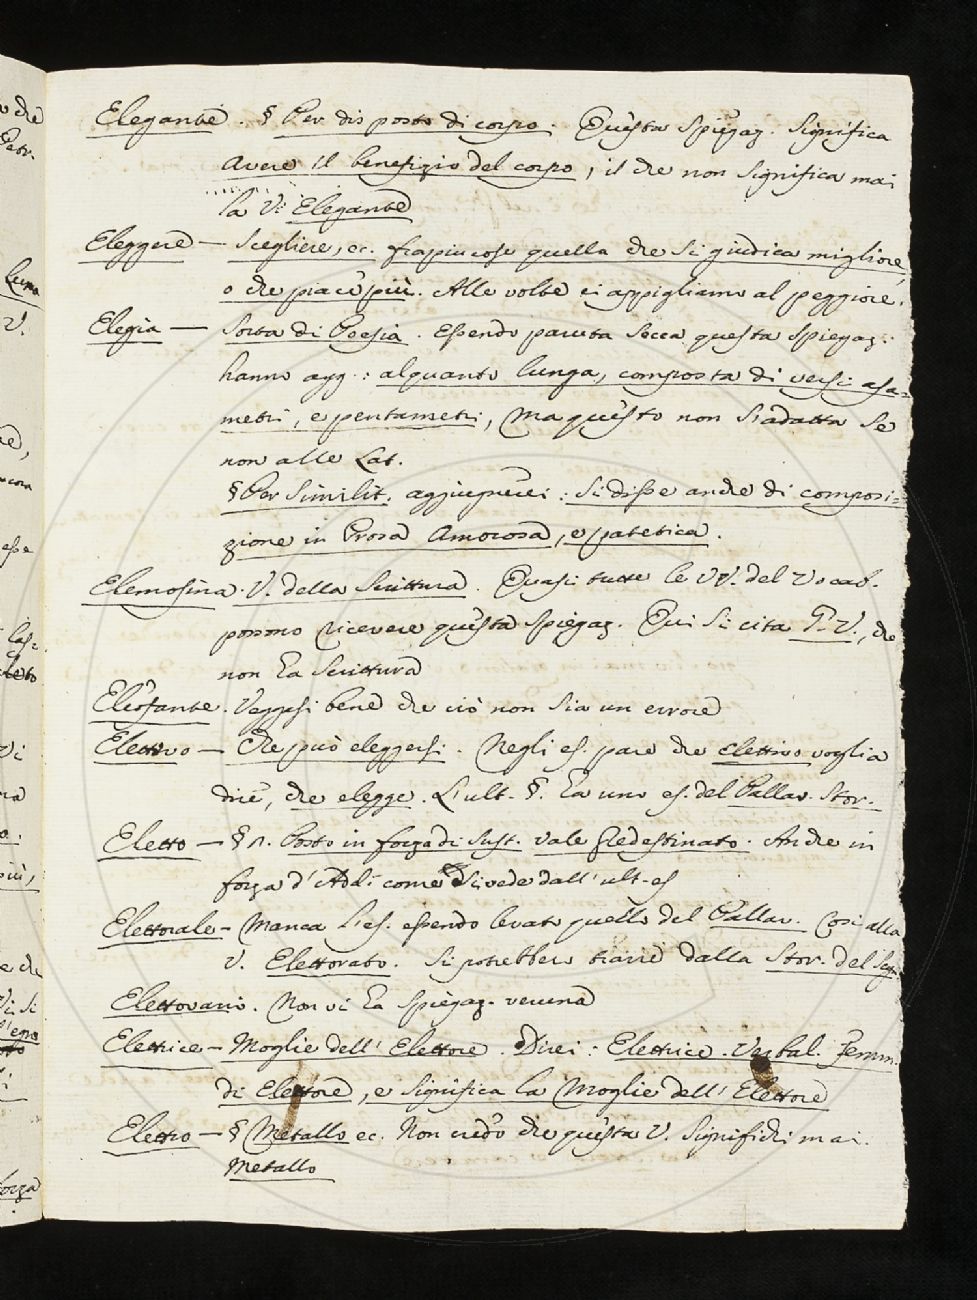 Elegante. § Per disposto di corpo. Questa spiegaz. significa
avere il benefizio del corpo, il che non significa mai
la V: Elegante
Eleggere — Scegliere, ec. frapiucose quella che si giudica migliore,
o che piace più. Alle volte ci appigliamo al peggiore.
Elegia — Sorta di Poesia. Essendo paruta secca questa spiegaz.
hanno agg.: alquanto lunga, composta di versi esa=
metri, e pentametri, ma questo non s'adatta se
non alle Lat.
§ Per Similit. aggiugnerei: si disse anche di composi=
zione in Prosa amorosa, e patetica.
Elemosina. V. della Scrittura. Quasi tutte le VV. del Vocab.
possono ricevere questa spiegaz. Qui si cita G. V., che
non ha Scrittura
Eleofante. Veggasi bene che ciò non sia un errore
Elettivo — Che può eleggersi. Negli es. pare che elettivo voglia
dire, che elegge. L'ult. §. ha uno es. del Pallav. Stor.
Eletto — § 1. Posto in forza di Sust. vale Predestinato. Anche in
forza d'Add. come si vede dall'ult. es
Elettorale — Manca l'es. essendo levato quello del Pallav. Così alla
V. Elettorato. Si potrebbero trarre dalla Stor. del Segn.
Elettovario. Non vi ha spiegaz. veruna
Elettrice — Moglie dell'Elettore. Direi: Elettrice. Verbal. Femm.
di Elettore, e significa la Moglie dell'Elettore
Elettro — § Metallo ec. Non credo che questa V. significhi mai
Metallo